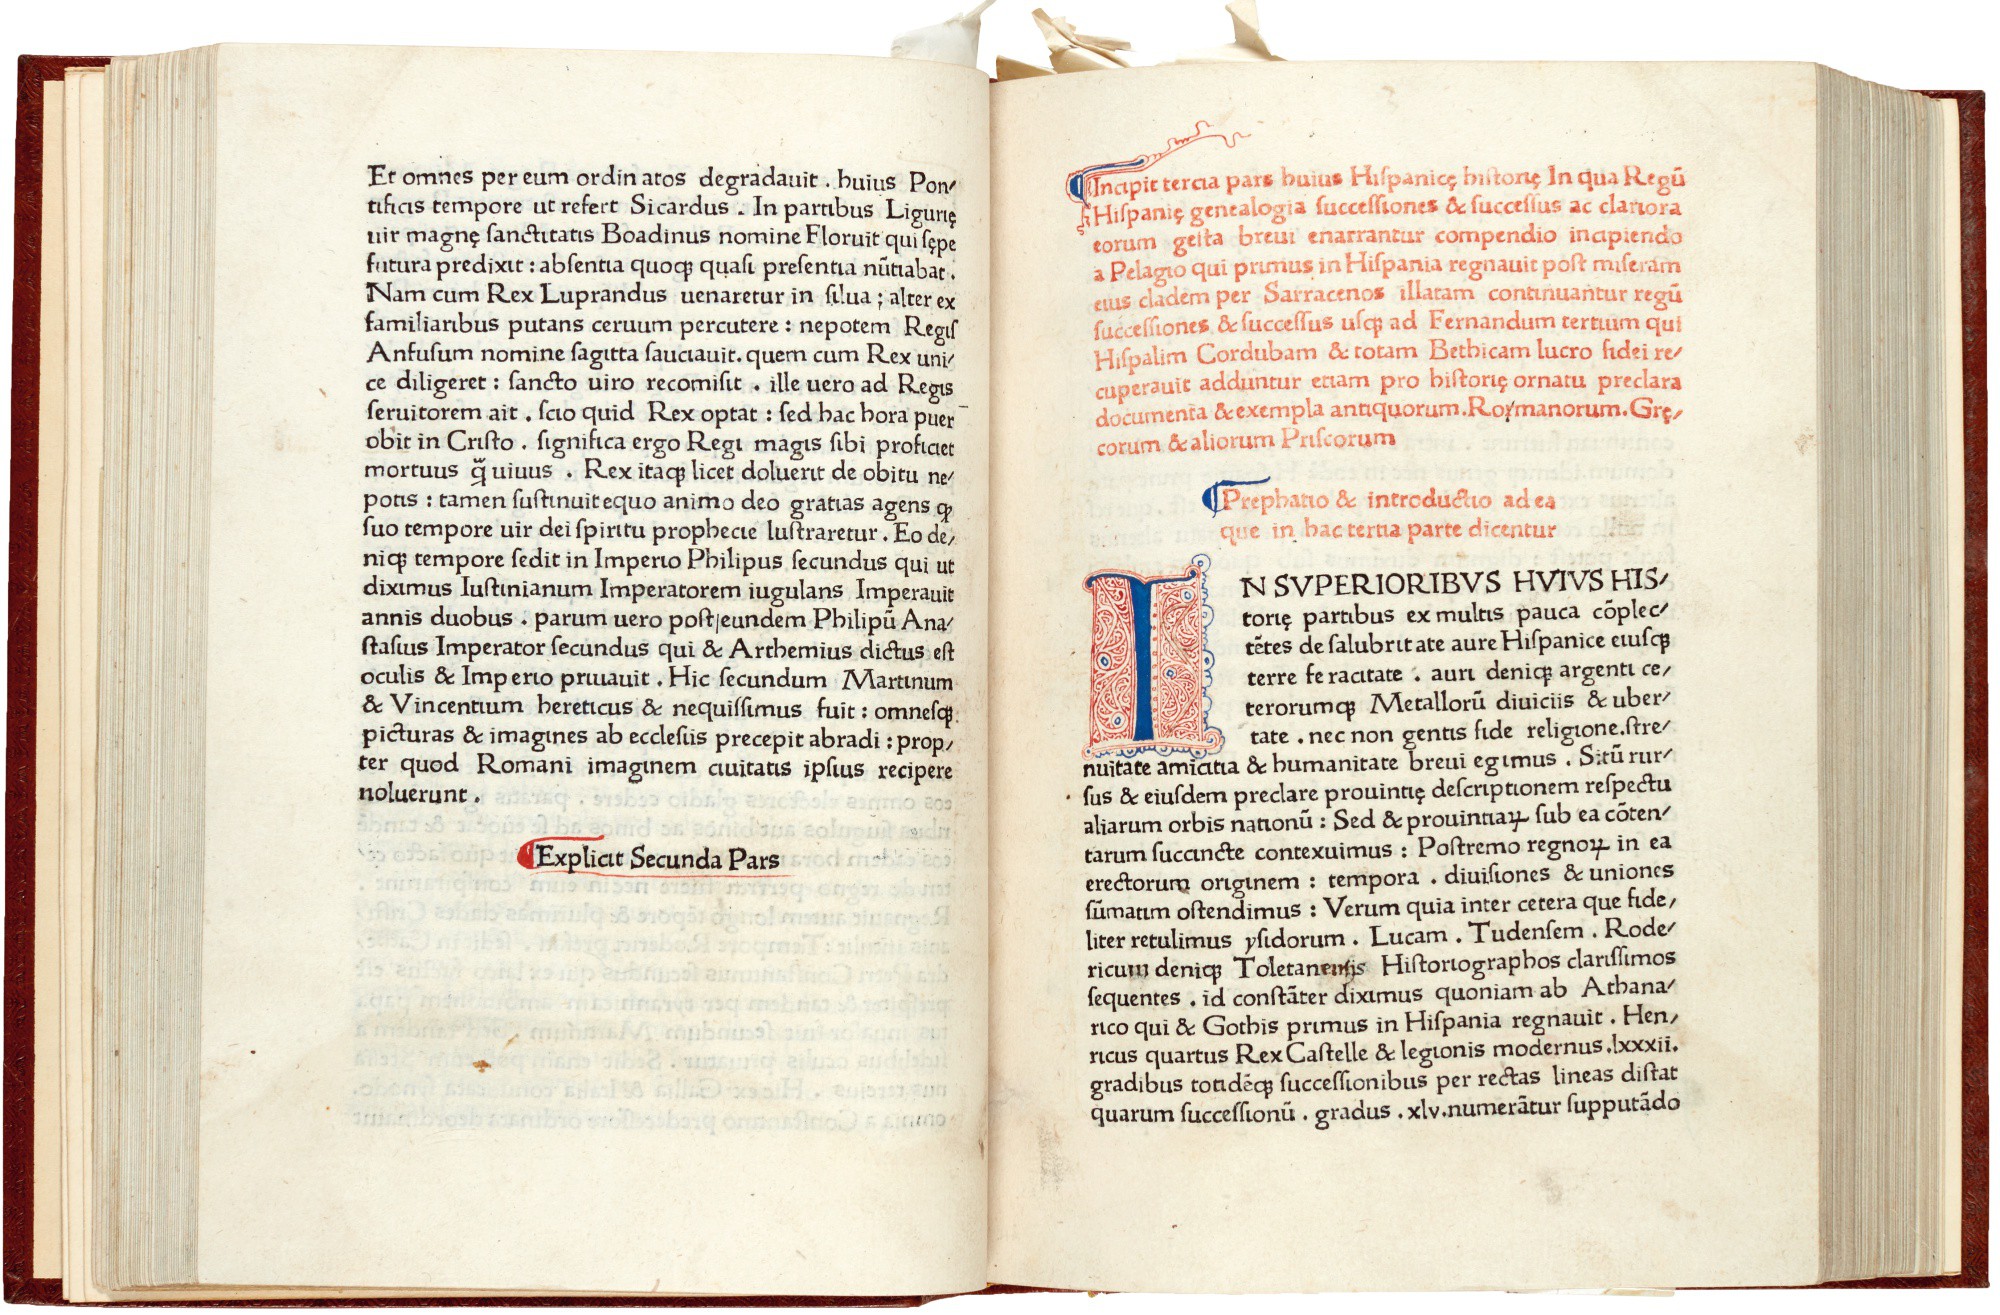 Et omnes per eum ordinatos degradauit . huius Pon/
tificis tempore ut refert Sicardus . In partibus Ligurię
uir magnę sanctitatis Boadinus nomine Floruit qui sępe
futura predixit : absentia quoqꝫ quasi presentia nūtiabat .
Nam cum Rex Luprandus uenaretur in silua ; alter ex
familiaribus putans ceruum percutere : nepotem Regis
Anfusum nomine sagitta sauciauit . quem cum Rex uni/
ce diligeret : sancto uiro recomisit . ille uero ad Regis
seruitorem ait . scio quid Rex optat : sed hac hora puer
obit in Cristo . significa ergo Regi magis sibi proficiet
mortuus q̄ꝫ uiuus . Rex itaqꝫ licet doluerit de obitu ne/
potis : tamen sustinuit equo animo deo gratias agens qꝫ
suo tempore uir dei spiritu prophecie lustraretur . Eo de/
niqꝫ tempore sedit in Imperio Philipus secundus qui ut
diximus Iustinianum Imperatorem iugulans Imperauit
annis duobus . parum uero post eundem Philipū Ana/
stasius Imperator secundus qui & Arthemius dictus est
oculis & Imperio priuauit . Hic secundum Martinum
& Vincentium hereticus & nequissimus fuit : omnesqꝫ
picturas & imagines ab ecclesiis precepit abradi : prop/
ter quod Romani imaginem ciuitatis ipsius recipere
noluerunt .
Explicit Secunda Pars
Incipit tercia pars huius Hispanicę historię In qua Regū
Hispanię genealogia successiones & successus ac clariora
eorum gesta breui enarrantur compendio incipiendo
a Pelagio qui primus in Hispania regnauit post miseram
eius cladem per Sarracenos illatam continuantur regū
successiones & successus usqꝫ ad Fernandum tertium qui
Hispalim Cordubam & totam Bethicam lucro fidei re/
cuperauit adduntur etiam pro historię ornatu preclara
documenta & exempla antiquorum . Romanorum . Grę/
corum & aliorum Priscorum
Prephatio & introductio ad ea
que in hac tertia parte dicentur
IN SVPERIORIBVS HVIVS HIS/
torię partibus ex multis pauca cōplec/
tētes de salubritate aure Hispanice eiusqꝫ
terre feracitate . auri deniqꝫ argenti ce/
terorumqꝫ Metallorū diuiciis & uber/
tate . nec non gentis fide religione . stre/
nuitate amicitia & humanitate breui egimus . Sitū rur/
sus & eiusdem preclare prouintię descriptionem respectu
aliarum orbis nationū : Sed & prouintiaꝝ sub ea cōten/
tarum succincte contexuimus : Postremo regnoꝝ in ea
erectorum originem : tempora . diuisiones & uniones
sūmatim ostendimus : Verum quia inter cetera que fide/
liter retulimus ysidorum . Lucam . Tudensem . Rode/
ricum deniqꝫ Toletanensis Historiographos clarissimos
sequentes . id constāter diximus quoniam ab Athana/
rico qui & Gothis primus in Hispania regnauit . Hen/
ricus quartus Rex Castelle & legionis modernus . lxxxii.
gradibus totidēqꝫ successionibus per rectas lineas distat
quarum successionū . gradus . xlv . numerātur supputādo